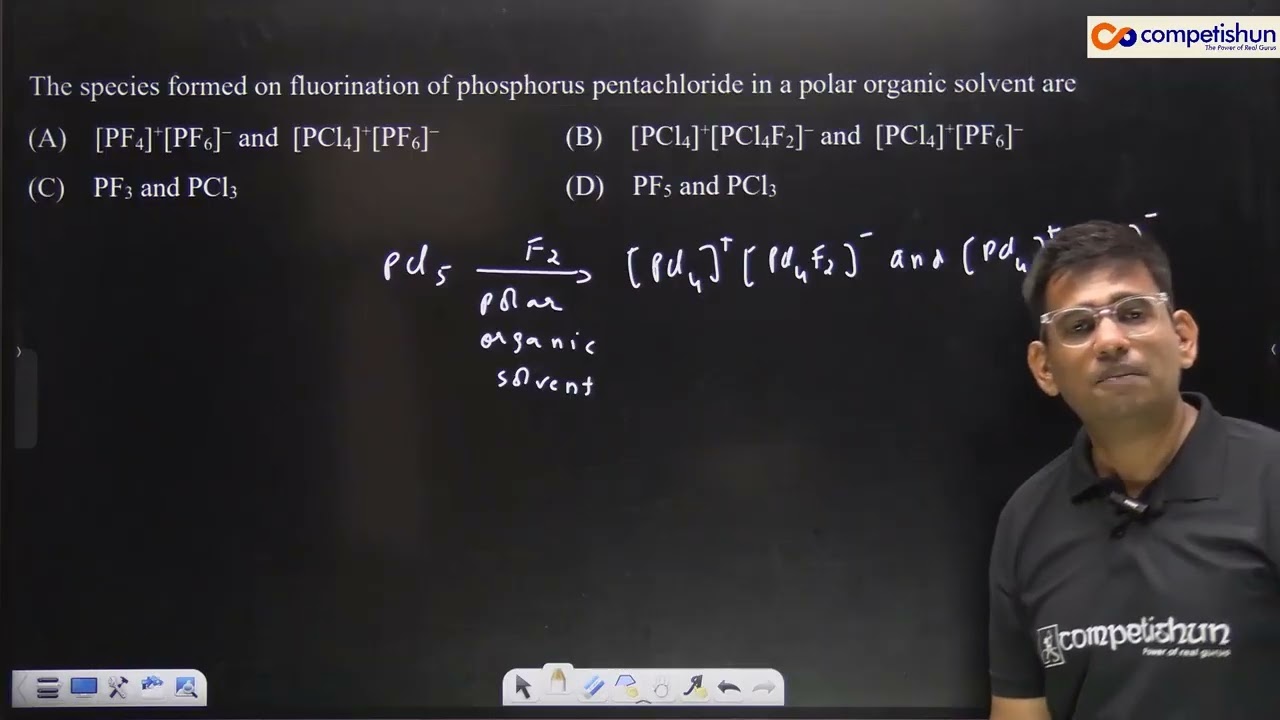 competishun
The Power of Real Gurus
The species formed on fluorination of phosphorus pentachloride in a polar organic solvent are
(A) [PF₄]⁺[PF₆]⁻ and [PCl₄]⁺[PF₆]⁻
(B) [PCl₄]⁺[PCl₄F₂]⁻ and [PCl₄]⁺[PF₆]⁻
(C) PF₃ and PCl₃
(D) PF₅ and PCl₃
PCl₅ F₂ → [PCl₄]⁺ [PCl₄F₂]⁻ and [PCl₄]⁺ ]⁻
polar
organic
solvent
competishun
Power of real gurus